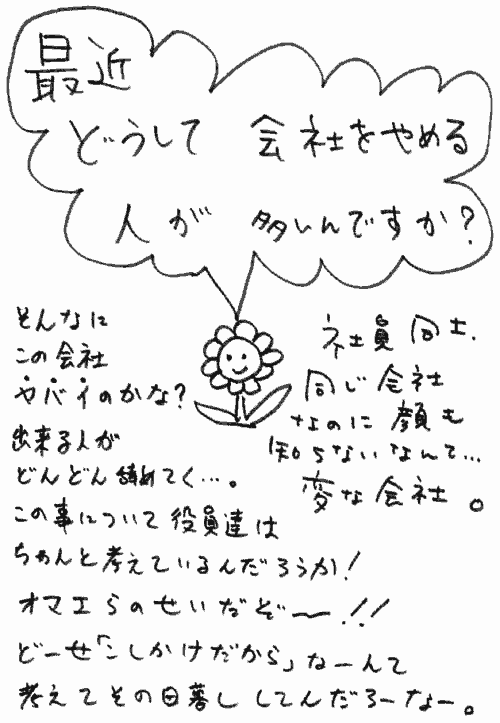 最近
どうして 会社をやめる
人が 多いんですか?
そんなに
この会社
ヤバイのかな?
出来る人が
どんどん辞めてく…。
この事について役員達は
ちゃんと考えているんだろうか!
オマエらのせいだぞ〜!!
どーせ「こしかけだから」なーんて
考えてその日暮ししてんだろーなー。
社員同士、
同じ会社
なのに顔も
知らないなんて…
変な会社。